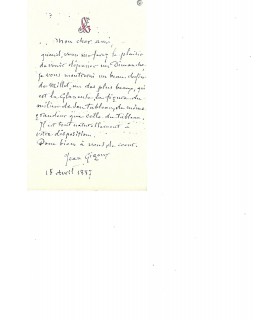 Mon cher ami,
quand vous me ferez le plaisir
de venir déjeuner un Dimanche,
je vous montrerai un beau dessin
de Millet, un des plus beaux, qui
est la Glaneuse, la figure du
milieu de son tableau, de même
grandeur que celle du tableau.
Il est tout naturellement à
votre disposition.
Donc bien à vous de cœur.
Jean Gigoux
15 Avril 1887